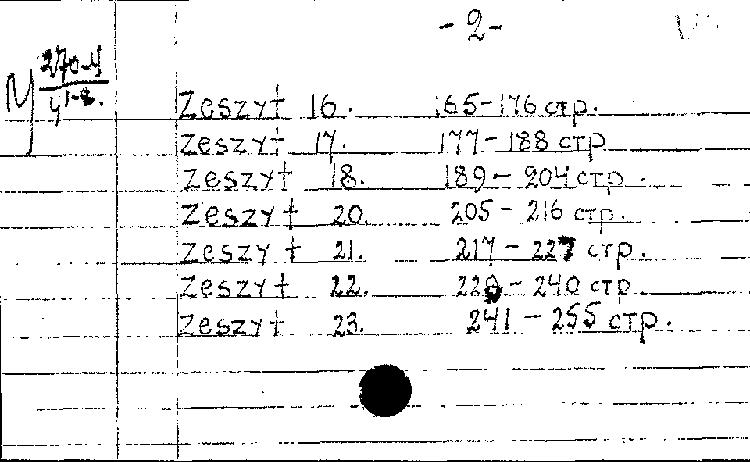 - 2 -
У 270-4
41-2.
Zeszyt 16. 165-176 стр.
Zeszyt 17. 177-188 стр
Zeszyt 18. 189-204 стр.
Zeszyt 20. 205-216 стр.
Zeszyt 21. 217-227 стр.
Zeszyt 22. 228-240 стр
Zeszyt 23. 241-255 стр.